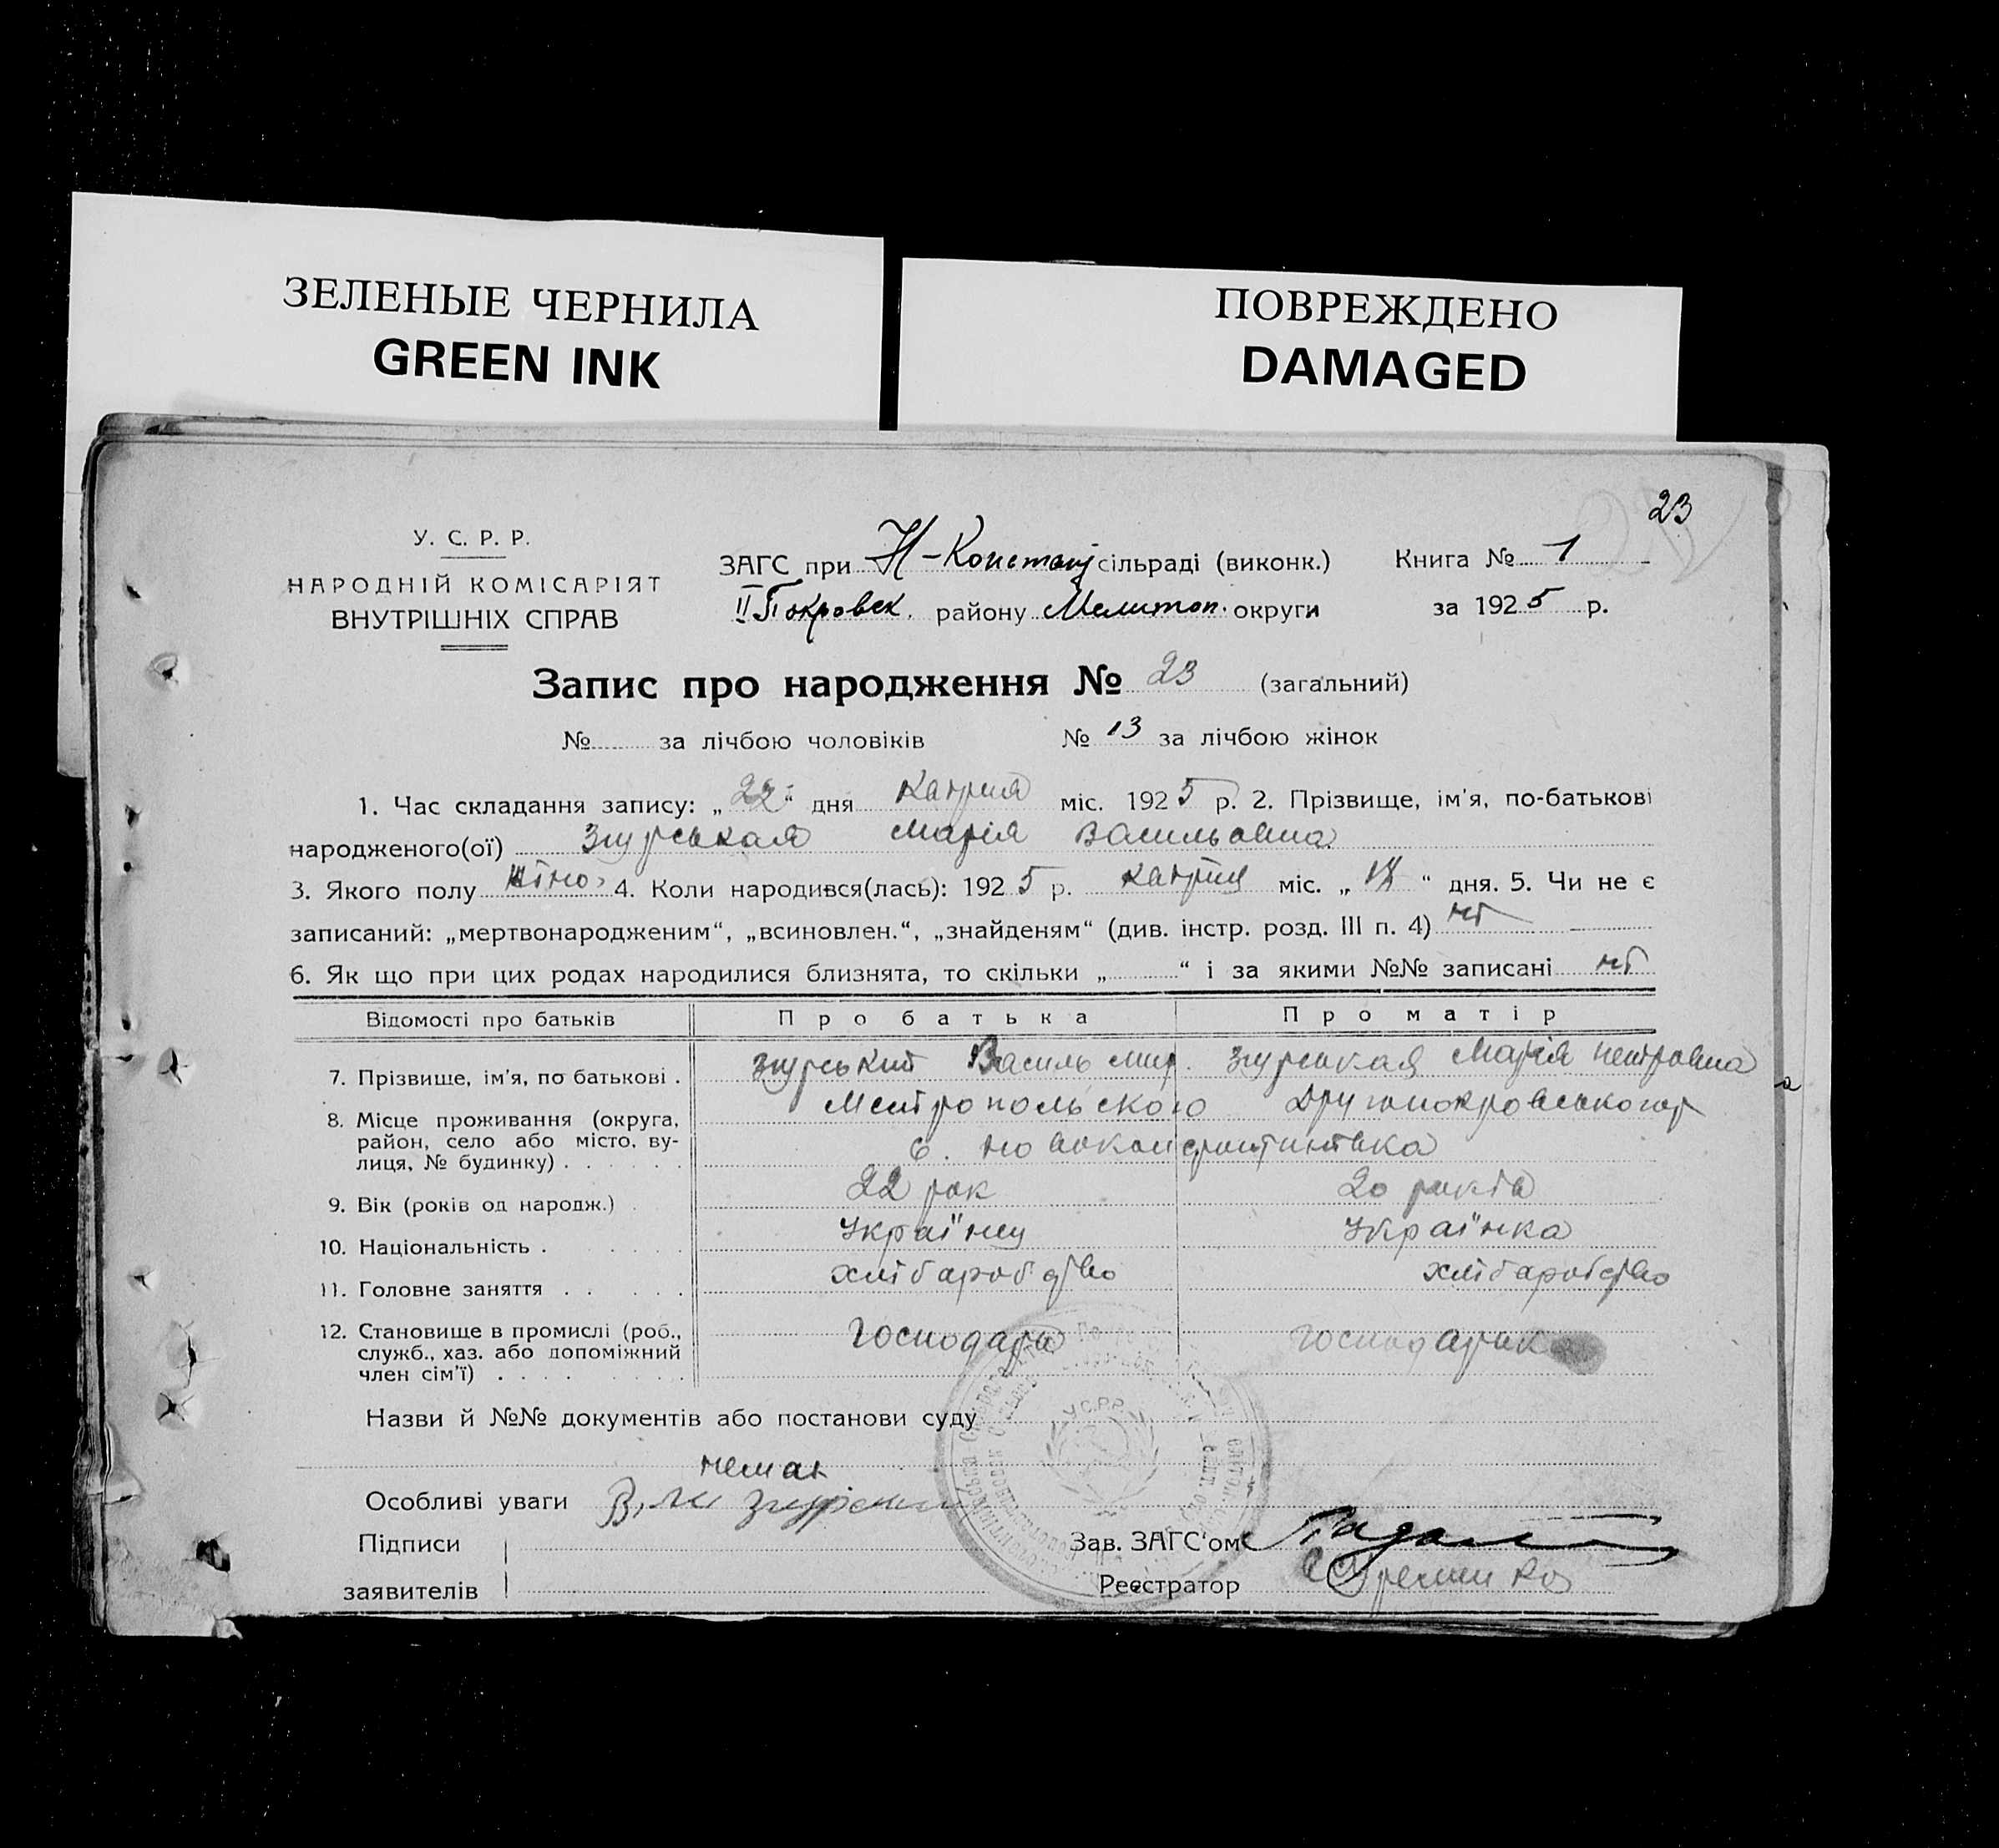 ЗЕЛЕНЫЕ ЧЕРНИЛА
GREEN INK
ПОВРЕЖДЕНО
DAMAGED
23
У. С. Р. Р.
НАРОДНІЙ КОМІСАРІЯТ
ВНУТРІШНІХ СПРАВ
ЗАГС при Н-Констант сільраді (виконк.) Книга № 1
II Покровск. району Мелитоп. округи за 1925 р.
Запис про народження № 23 (загальний)
№ за лічбою чоловіків № 13 за лічбою жінок
1. Час складання запису: „22“ дня Квітня міс. 1925 р. 2. Прізвище, ім'я, по-батькові
народженого(ої) Згурськая Марія Васильовна
3. Якого полу жіно 4. Коли народився(лась): 1925 р. міс. „ “ дня. 5. Чи не є
записаний: „мертвонародженим“, „всиновлен.“, „знайденям“ (див. інстр. розд. III п. 4) ні
6. Як що при цих родах народилися близнята, то скільки „ “ і за якими №№ записані ні
Відомості про батьків Про батька Про матір
7. Прізвище, ім'я, по батькові . Згурський Василь Мир. Згурськая Марія Петровна
8. Місце проживання (округа, район, село або місто, вулиця, № будинку) . Мелітропольского Другопокровського р
с. Новоконстинтівка
9. Вік (років од народж.) . 22 рок 20 років
10. Національність . Украї́нец Украї́нка
11. Головне заняття . хлібаробство хлібаробство
12. Становище в промислі (роб., служб., хаз. або допоміжний член сім'ї) . Господарь господарка
Назви й №№ документів або постанови суду
немає
Особливі уваги
Підписи
заявителів
Зав. ЗАГС'ом
Реєстратор
У.С.Р.Р.